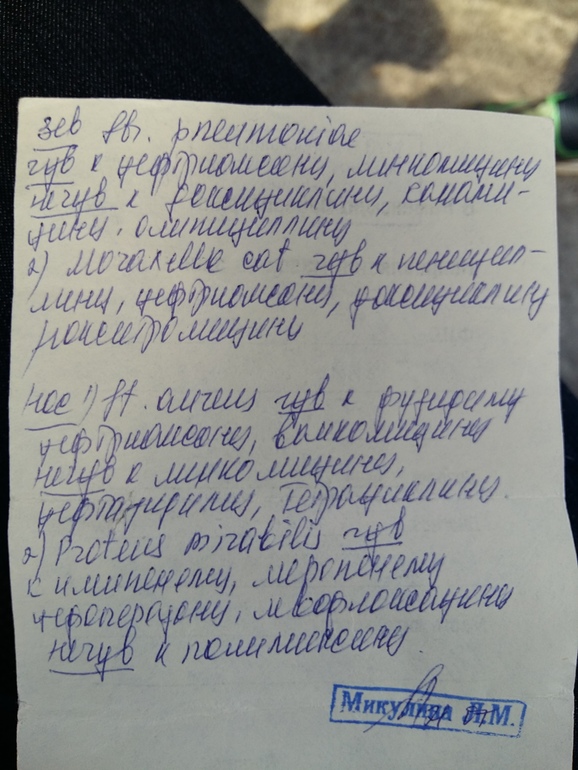 Зев Str. pneumoniae
чув к цефтриаксону, линкомицину
нечув к доксициклину, канами-
цину, ампициллину
2) Moraxella cat чув к пеницил-
лину, цефтриаксону, доксициклину
рокситромицину
Нос 1) St. aureus чув к фузидину
цефтриаксону, ванкомицину
нечув к линкомицину,
цефтазидиму, тетрациклину.
2) Proteus mirabilis чув
к имипенему, меропенему
левофлоксацину
нечув к полимиксину
Микулина Л.М.